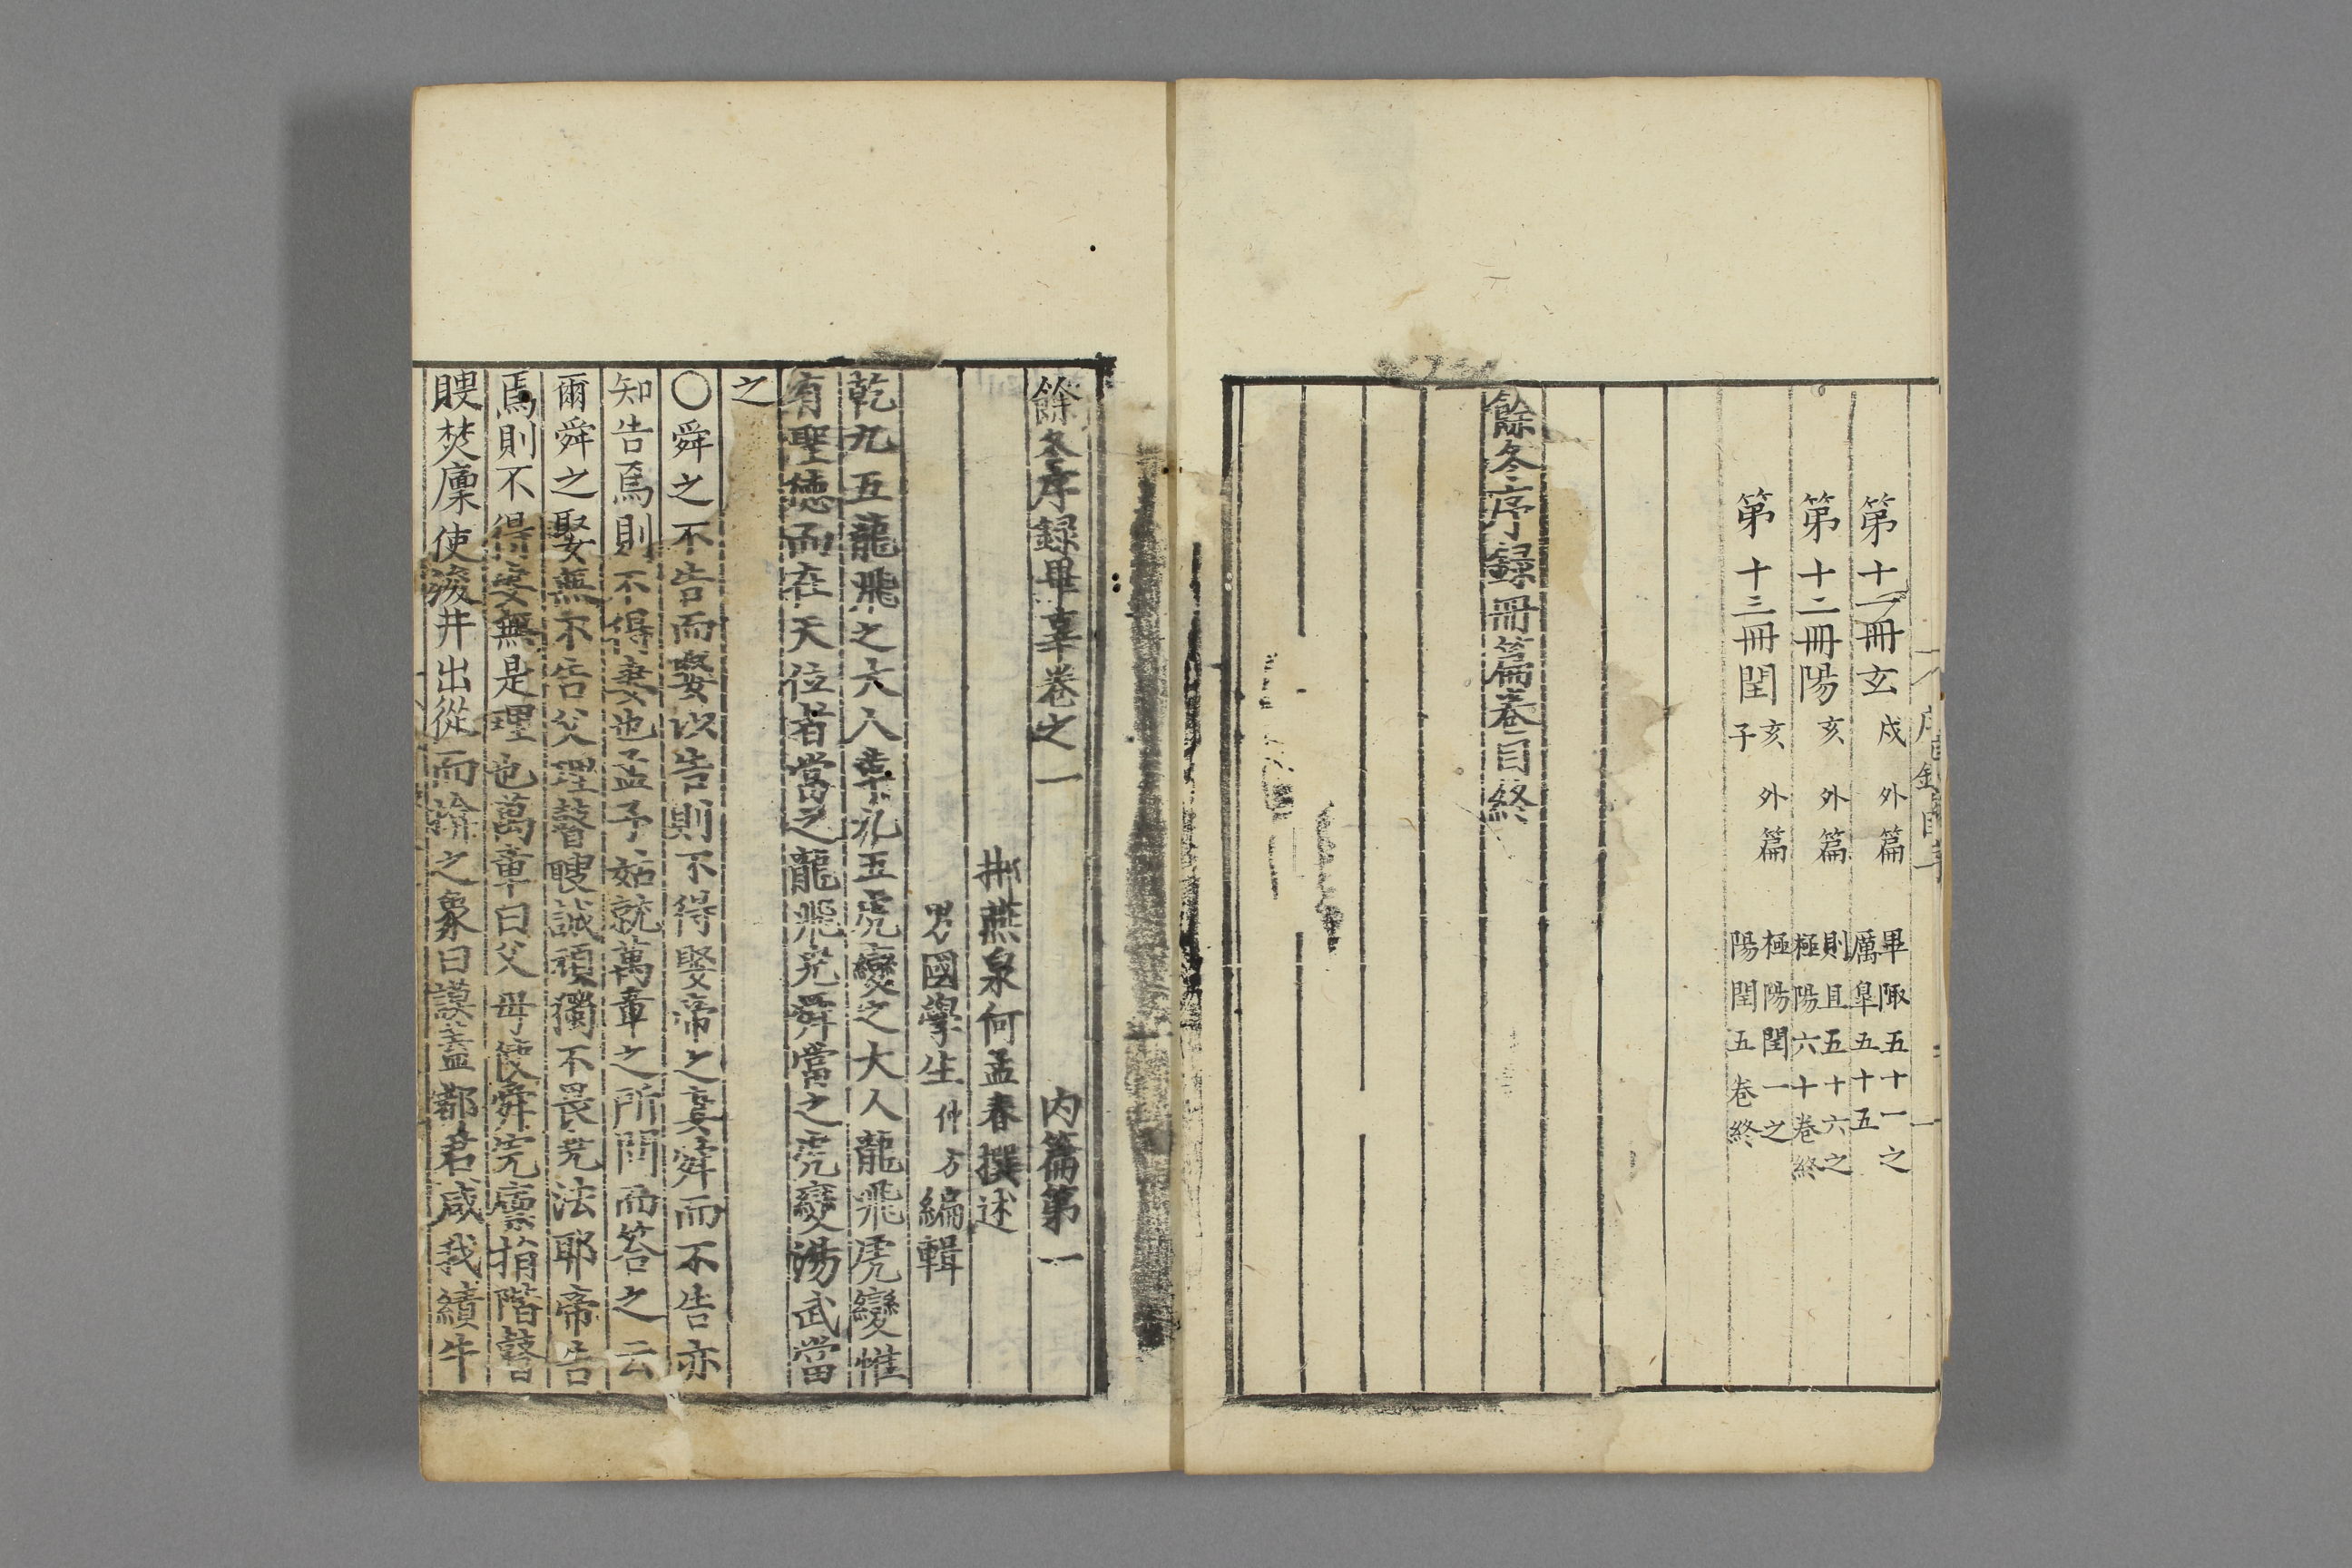 第十一冊玄 戌 外篇 畢陬五十一之厲皐五十五
第十二冊陽 亥 外篇 則且五十六之極陽六十卷終
第十三冊閏 亥子 外篇 極陽閏一之陽閏五卷終
餘冬序録冊篇卷目終
餘冬序録畢辜卷之一 内篇第一
郴燕泉何孟春撰述
男國學生仲方編輯
乾九五龍飛之大人革九五虎變之大人龍飛虎變惟
有聖德而在天位者當之龍飛堯舜當之虎變湯武當
之
〇舜之不告而娶以告則不得娶帝之妻舜而不告亦
知告焉則不得妻也孟子姑就萬章之所問而答之云
爾舜之娶無不告父理瞽瞍誠頑獨不畏堯法耶帝告
焉則不得妻無是理也萬章曰父母使舜完廩捐階瞽
瞍焚廩使浚井出從而揜之象曰謨蓋都君咸我績牛